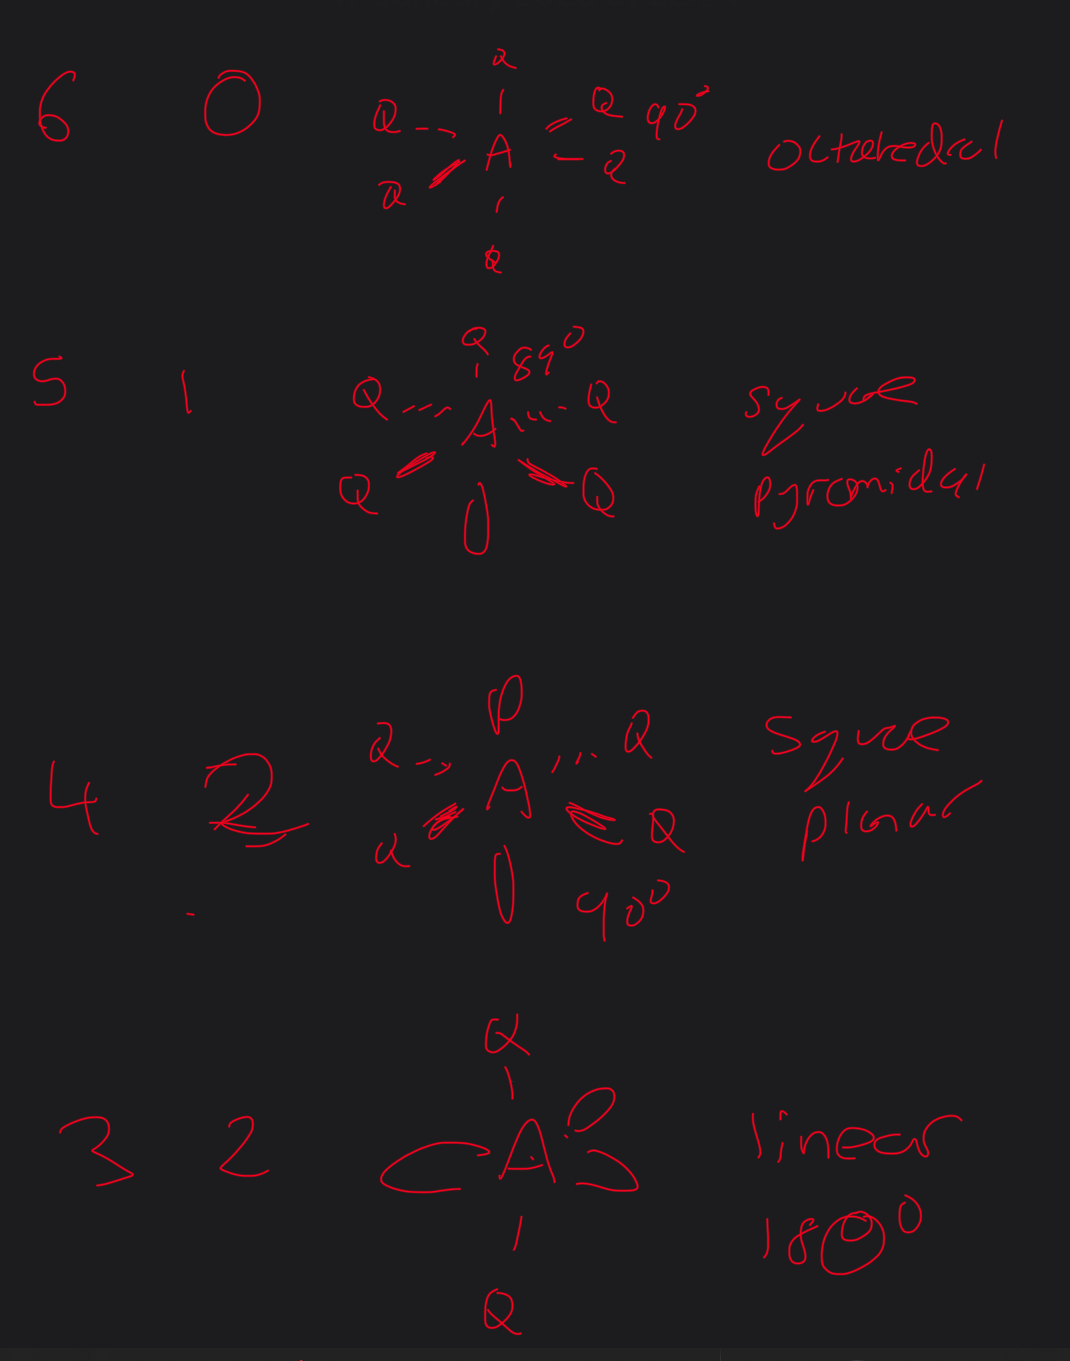 6 0 Q Q Q A Q Q Q 90° octahedral
5 1 Q 89° Q A Q Q Q square
pyramidal
4 2 Q A Q Q Q 90° square
planar
3 2 Q A Q linear
180°